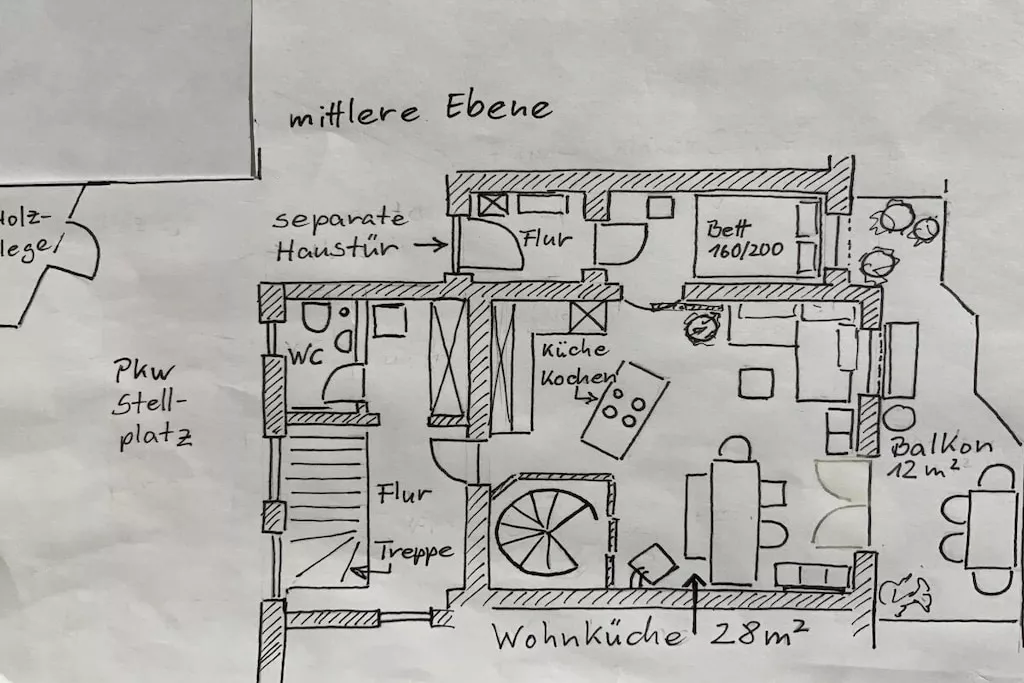 mittlere Ebene
Holz-
lege
separate
Haustür
Flur
Bett
160/200
WC
Küche
Kochen
Pkw
Stell-
platz
Flur
Treppe
Balkon
12 m²
Wohnküche 28 m²